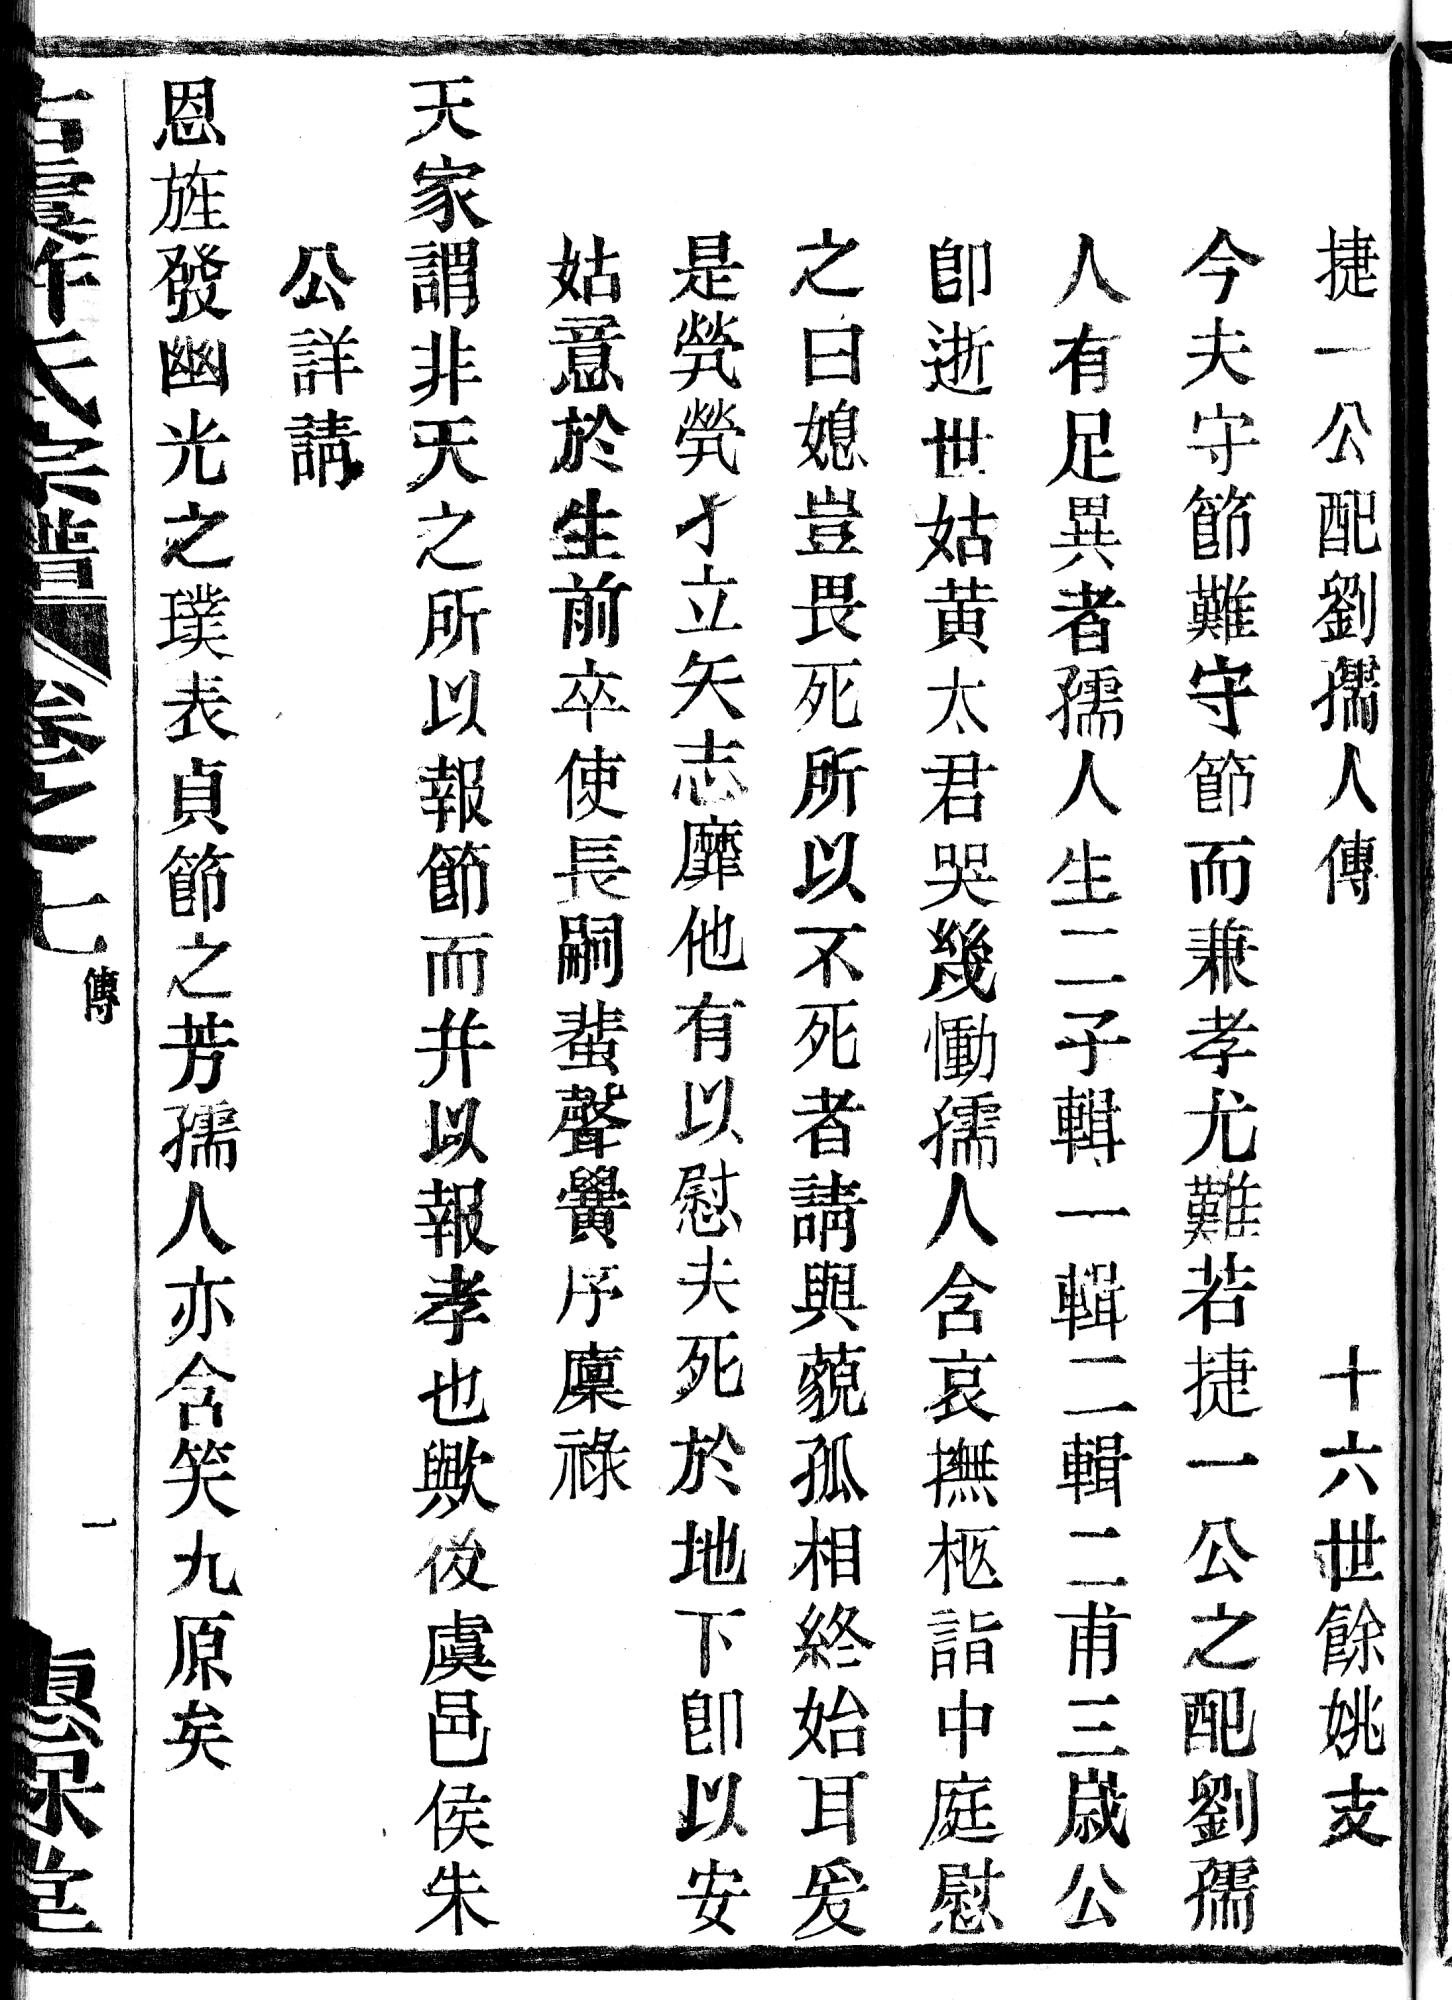 捷一公配劉孺人傳 十六世餘姚支
今夫守節難守節而兼孝尤難若捷一公之配劉孺
人有足異者孺人生二子輯一輯二輯二甫三歲公
卽逝世姑黃太君哭幾慟孺人含哀撫柩詣中庭慰
之曰媳豈畏死所以不死者請與藐孤相終始耳爰
是煢煢孑立矢志靡他有以慰夫死於地下卽以安
姑意於生前卒使長嗣蜚聲黌序廩祿
天家謂非天之所以報節而并以報孝也歟後虞邑侯朱
公詳請
恩旌發幽光之璞表貞節之芳孺人亦含笑九原矣
古虞許氏宗譜 卷之七 傳 一 惠保堂